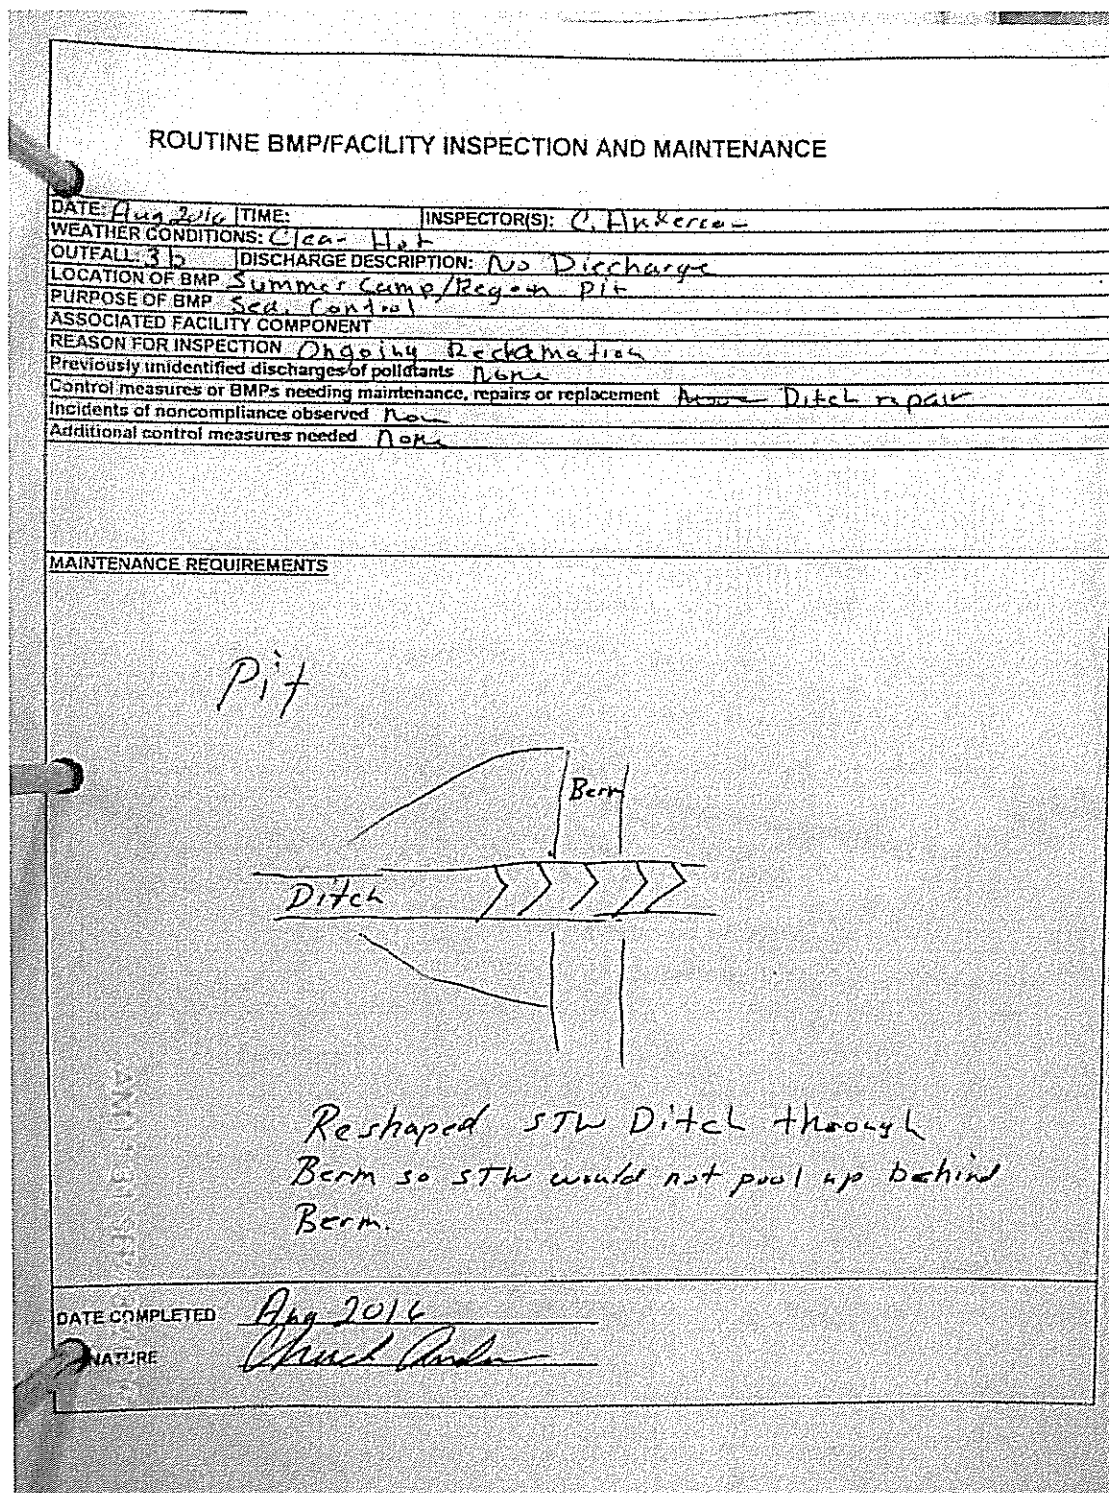 ROUTINE BMP/FACILITY INSPECTION AND MAINTENANCE
DATE: Aug 2016 TIME: INSPECTOR(S): C. Anderson
WEATHER CONDITIONS: Clear Hot
OUTFALL: 3b DISCHARGE DESCRIPTION: No Discharge
LOCATION OF BMP Summer Camp/ Pit
PURPOSE OF BMP Sed. Control
ASSOCIATED FACILITY COMPONENT
REASON FOR INSPECTION Ongoing Reclamation
Previously unidentified discharges of pollutants None
Control measures or BMPs needing maintenance, repairs or replacement Ditch repair
Incidents of noncompliance observed Non
Additional control measures needed None
MAINTENANCE REQUIREMENTS
Pit
Berm
Ditch
Reshaped STW Ditch through
Berm so STW would not pool up behind
Berm.
DATE COMPLETED Aug 2016
NATURE Chuck